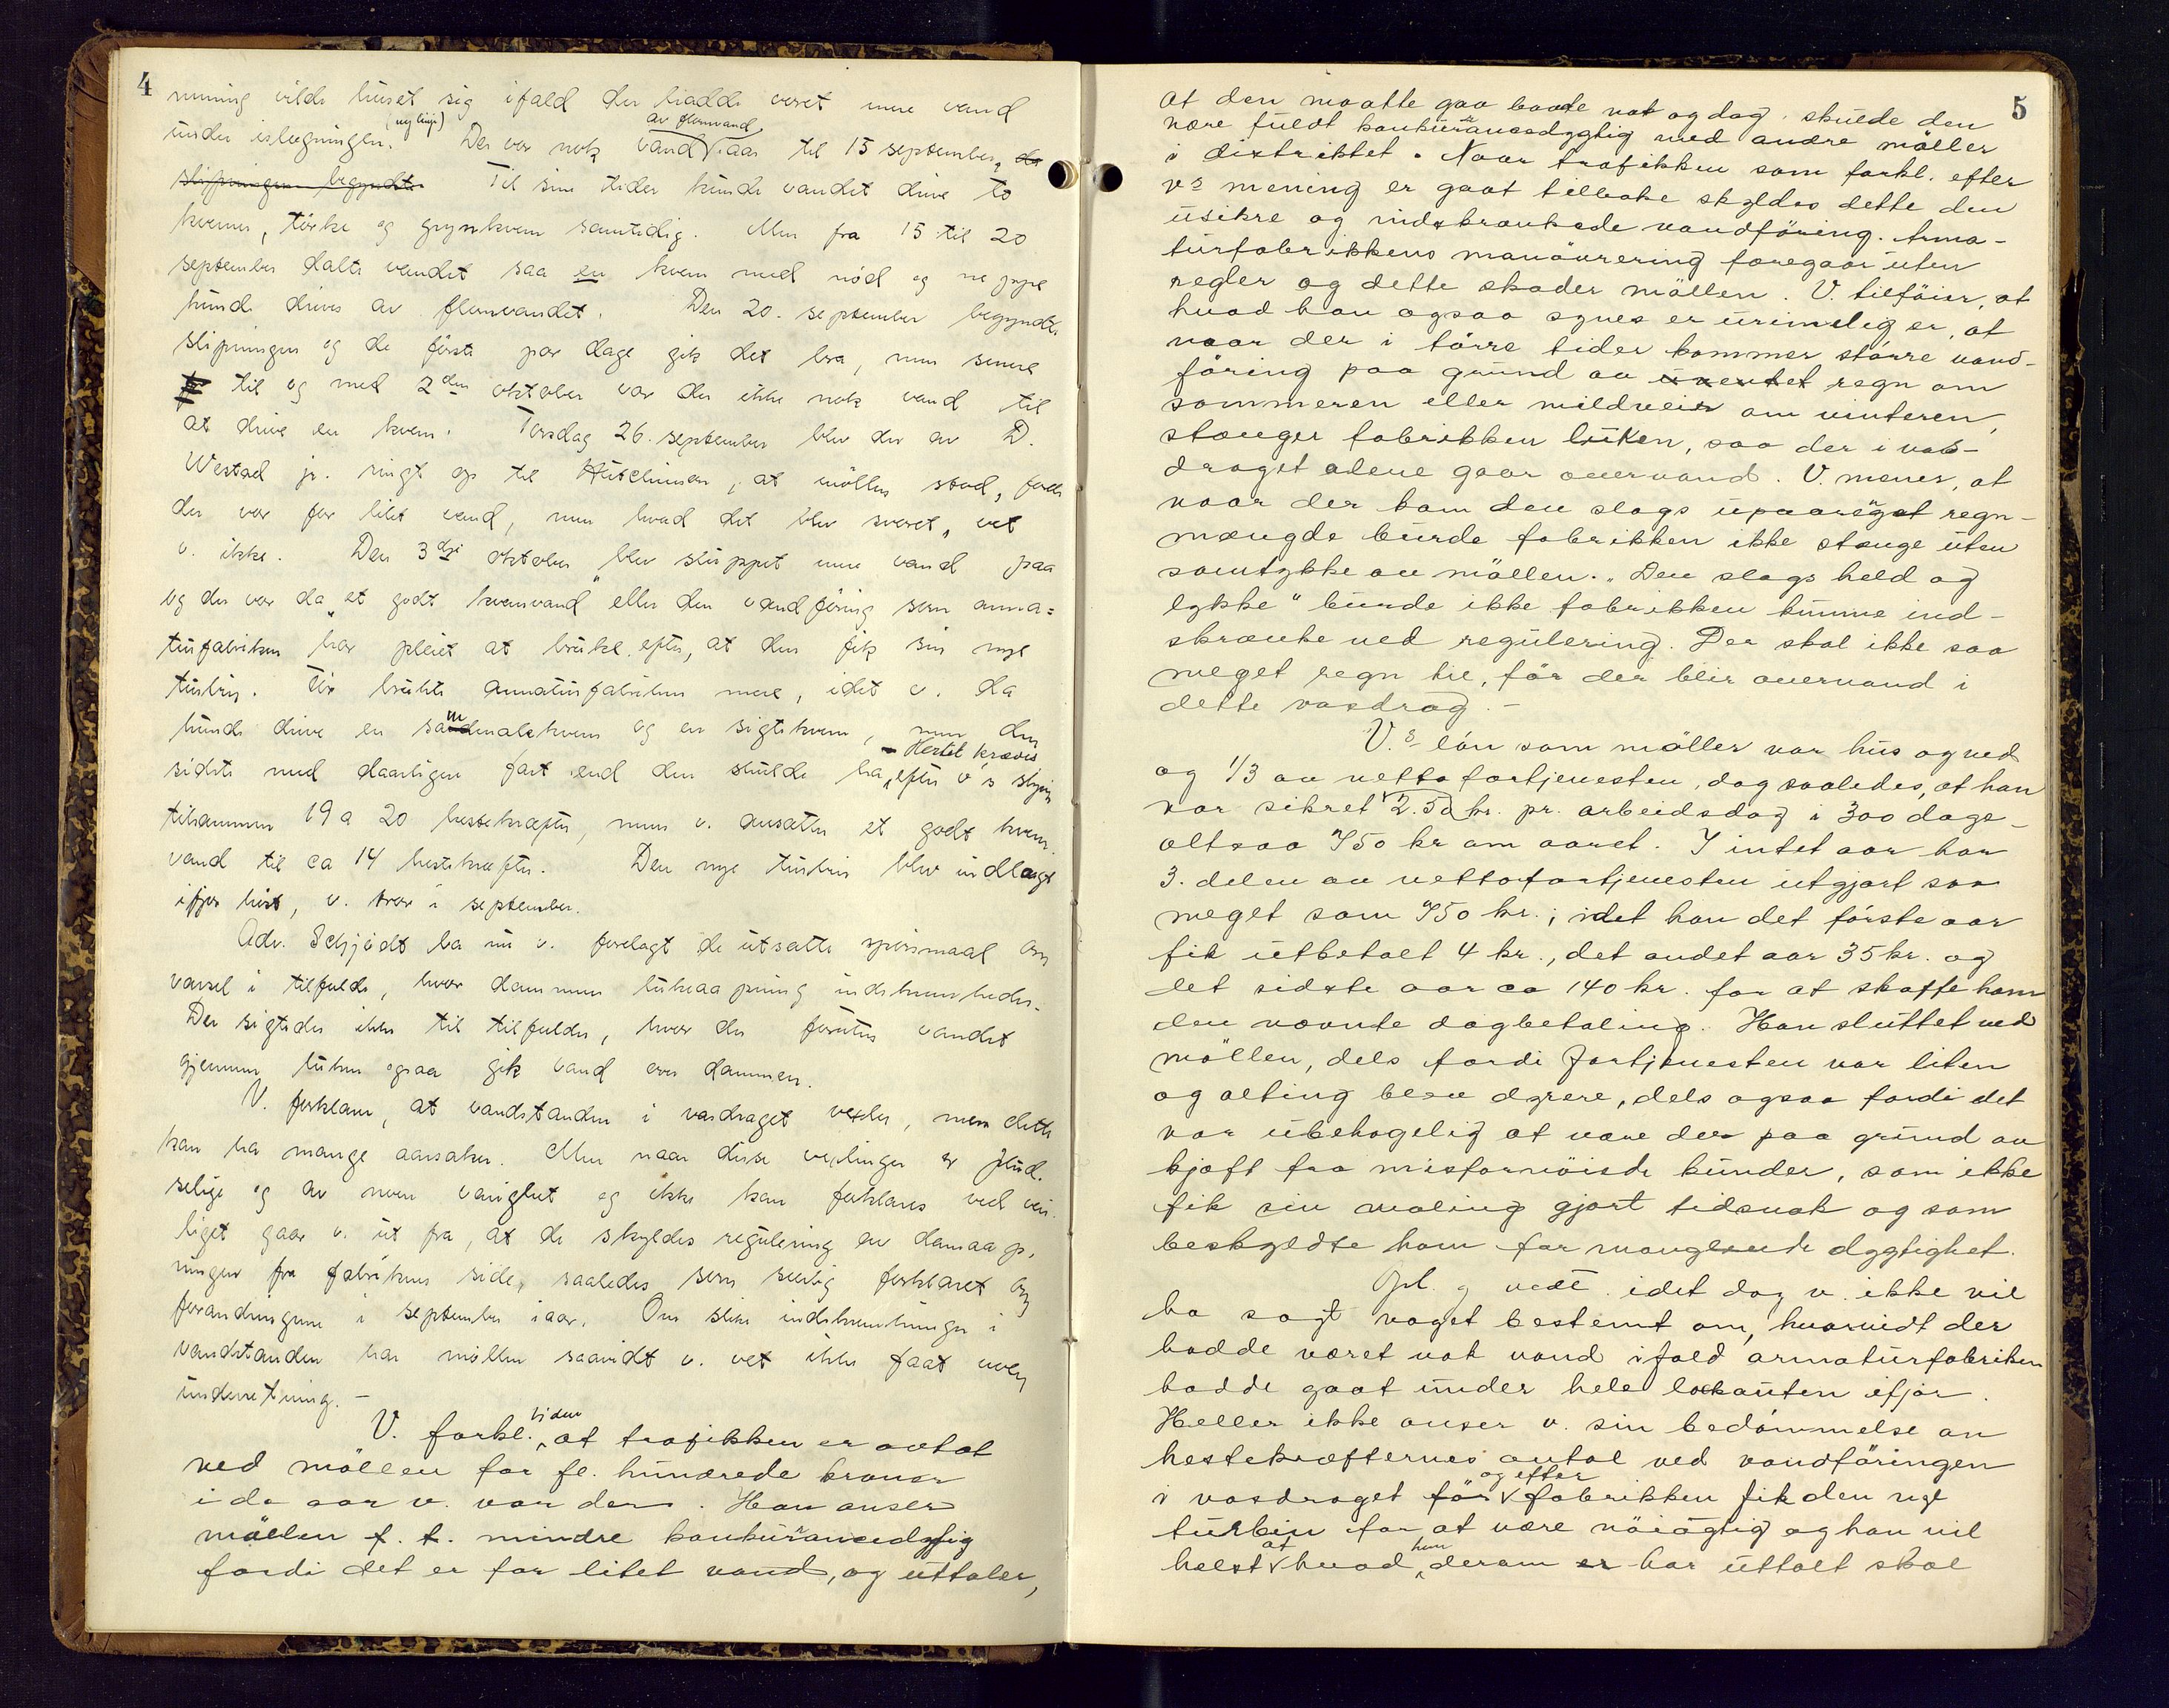 4
mening vilde huset sig ifald der hadde været mere vand
under islægningen. (uglign) Der var nok vand av flomvand iaar til 15 september, da
slipningen begyndte. Til sine tider kunde vandet drive to
kverner, tørke og grynkvern samtidig. Men fra 15 til 20
september dalte vandet saa en kvern med nød og neppe
kunde drives av flomvandet. Den 20. september begyndte
slipningen og de første par dage gik det bra, men senere
til og med 2den oktober var der ikke nok vand til
at drive en kvern. Torsdag 26. september blev der av D.
Westad jr. ringt op til Hutchinson, at møllen stod, fordi
der var for litet vand, men hvad det blev svaret, vet
v. ikke. Den 3dje oktober blev sluppet mere vand paa
og der var da "et godt kvernvand" eller den vandføring som arma=
turfabriken har pleiet at bruke efter, at den fik sin nye
turbin. Før brukte armaturfabriken mere, idet v. da
kunde drive en sammalekvern og en sigtekvern, men den
sidste med daarligere fart end den skulde ha, efter v's skjøn
- Hertil kræves
tilsammen 19 a 20 hestekræfter, men v. ansætter et godt kvern-
vand til ca 14 hestekræfter. Den nye turbin blev indlagt
ifjor høst, v. tror i september.
Adv. Schjødt ba nu v. forelagt de utsatte spørsmaal om
varsel i tilfælde, hvor dammens lukeaapning indskrænkedes.
Der sigtedes ikke til tilfælde, hvor der foruten vandet
gjennem luken ogsaa gik vand over dammen.
V. forklarer, at vandstanden i vasdraget veksler, men dette
kan ha mange aarsaker. Men naar disse vekslinger er plud.
selige og av noen varighet og ikke kan forklares ved veir
liget gaar v. ut fra, at de skyldes regulering av damaap.
ningen fra fabrikens side, saaledes som særlig forklaret om
forandringene i september iaar. Om slike indskrænkninger i
vandstanden har møllen saavidt v. vet ikke faat noen
underretning. -
V. forkl. viden at trafikken er avtat
ved møllen for fl. hundrede kroner
i de aar v. var der. Han anser
møllen f. t. mindre konkurancedygtig
fordi det er for litet vand, og uttaler,
5
at den maatte gaa baade nat og dag, skulde den
være fuldt konkuranсedygtig med andre møller
i distriktet. Naar trafikken som forkl. efter
v's mening er gaat tilbake skyldes dette den
usikre og indskrænkede vandføring. Arma-
turfabrikkens manøvrering foregaar uten
regler og dette skader møllen. V. tilføier, at
hvad han ogsaa synes er urimelig er, at
naar der i tørre tider kommer større vand-
føring paa grund av uventet regn om
sommeren eller mildveir om vinteren,
stænger fabrikken luken, saa der i vas-
draget alene gaar overvand. V. mener, at
naar der kom den slags upaaregnet regn-
mængde burde fabrikken ikke stænge uten
samtykke av møllen. "Den slags held og
lykke" burde ikke fabrikken kunne ind-
skrænke ved regulering. Der skal ikke saa
meget regn til, før der blir overvand i
dette vasdrag. -
V.s løn som møller var hus og ved
og 1/3 av nettofortjenesten, dog saaledes, at han
var sikret 2.50 kr. pr. arbeidsdag i 300 dage -
altsaa 750 kr om aaret. I intet aar har
3. delen av nettofortjenesten utgjort saa
meget som 750 kr.; idet han det første aar
fik utbetalt 4 kr., det andet aar 35 kr. og
det sidste aar ca 140 kr. for at skaffe ham
den nævnte dagbetaling. Han sluttet ved
møllen, dels fordi fortjenesten var liten
og alting blev dyrere, dels ogsaa fordi det
var ubehagelig at være der paa grund av
kjæft fra misfornøiede kunder, som ikke
fik sin maling gjort tidsnok og som
beskyldte ham for manglende dygtighet.
Opl. g vedt. idet dog v. ikke vil
ha sagt noget bestemt om, hvorvidt der
hadde været nok vand ifald armaturfabriken
hadde gaat under hele lockauten ifjor.
Heller ikke anser v. sin bedømmelse av
hestekræfternes antal ved vandføringen
i vasdraget før og efter fabrikken fik den nye
turbin for at være nøiagtig og han vil
helst at hvad han derom har uttalt skal